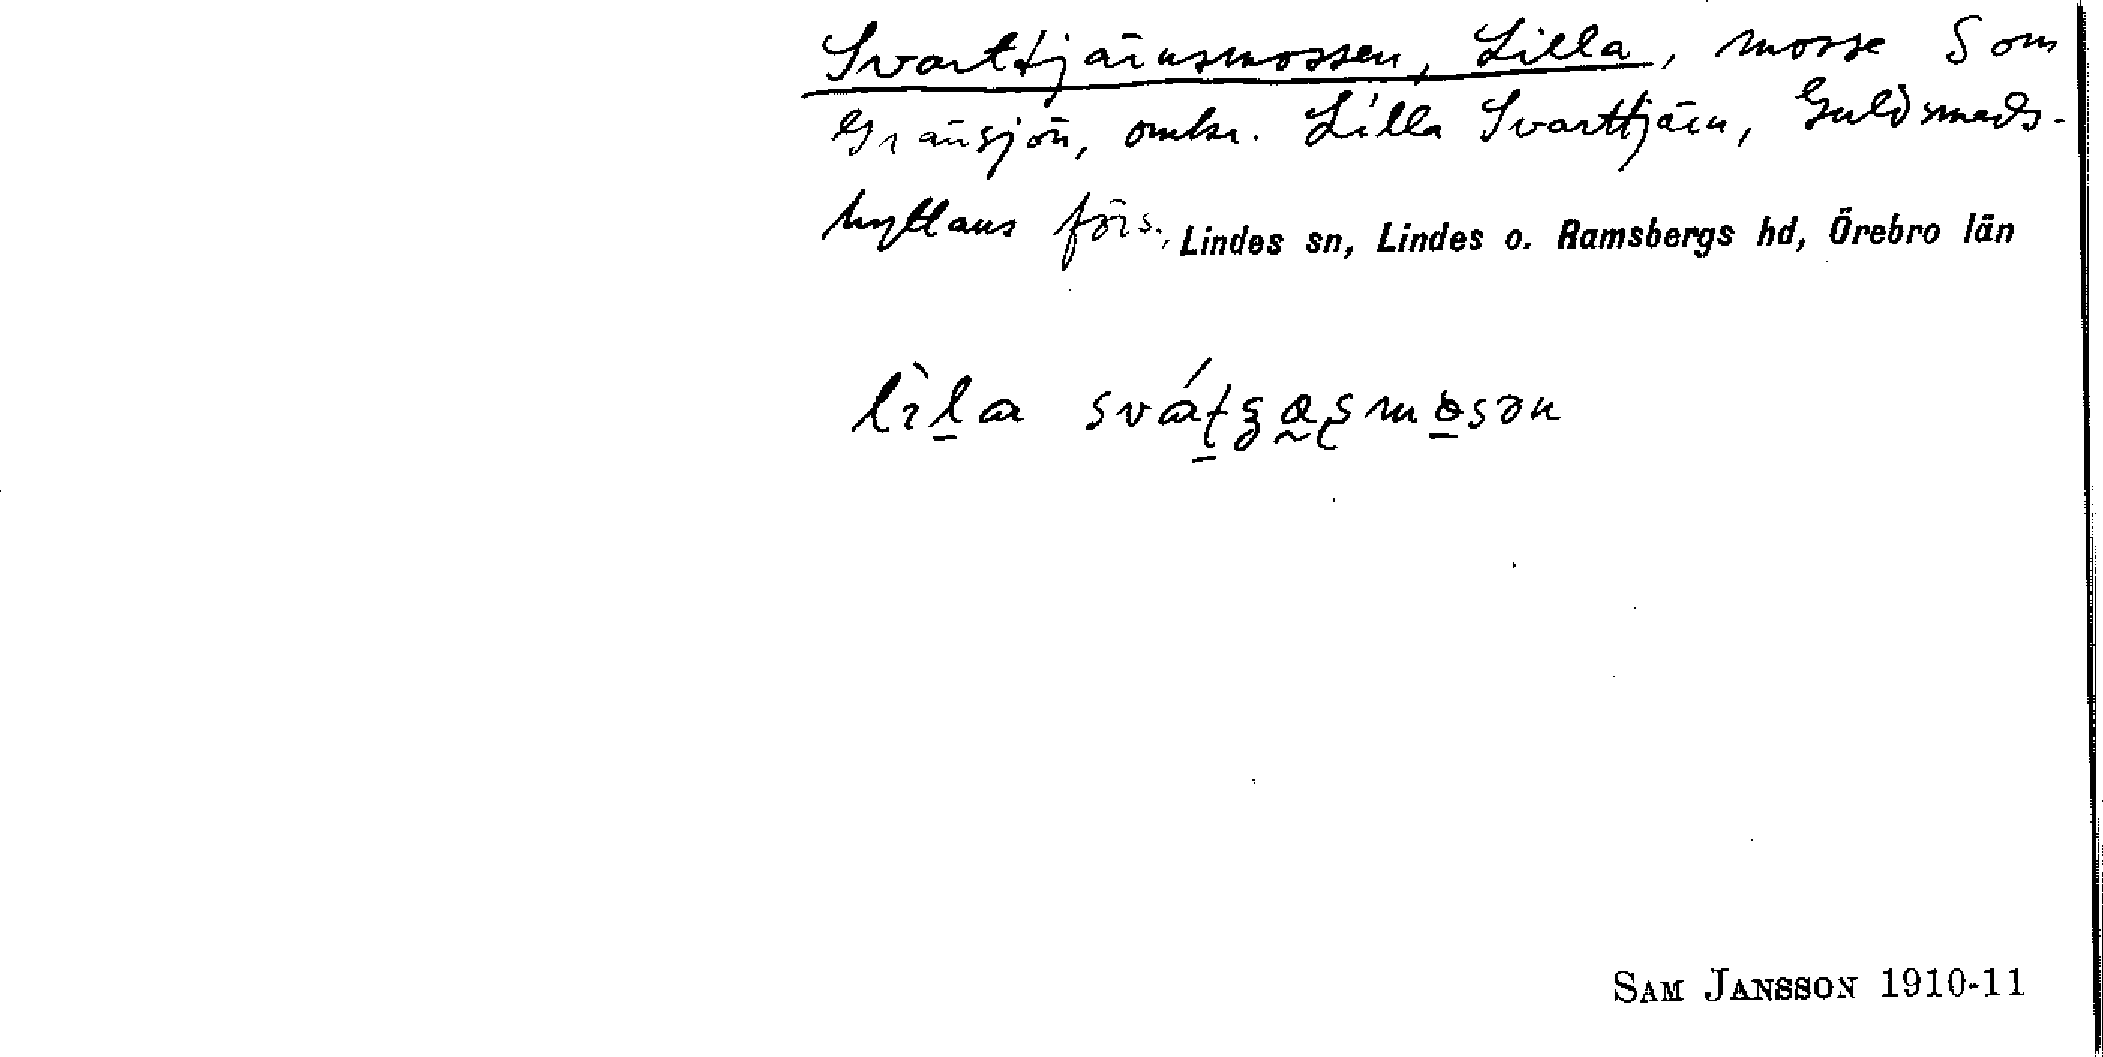 Svarttjärnsmossen, Lilla, mosse S om
Gränsjön, omkr. Lilla Svarttjärn, Guldsmeds-
hyttans förs., Lindes sn, Lindes o. Ramsbergs hd, Örebro län
SAM JANSSON 1910-11